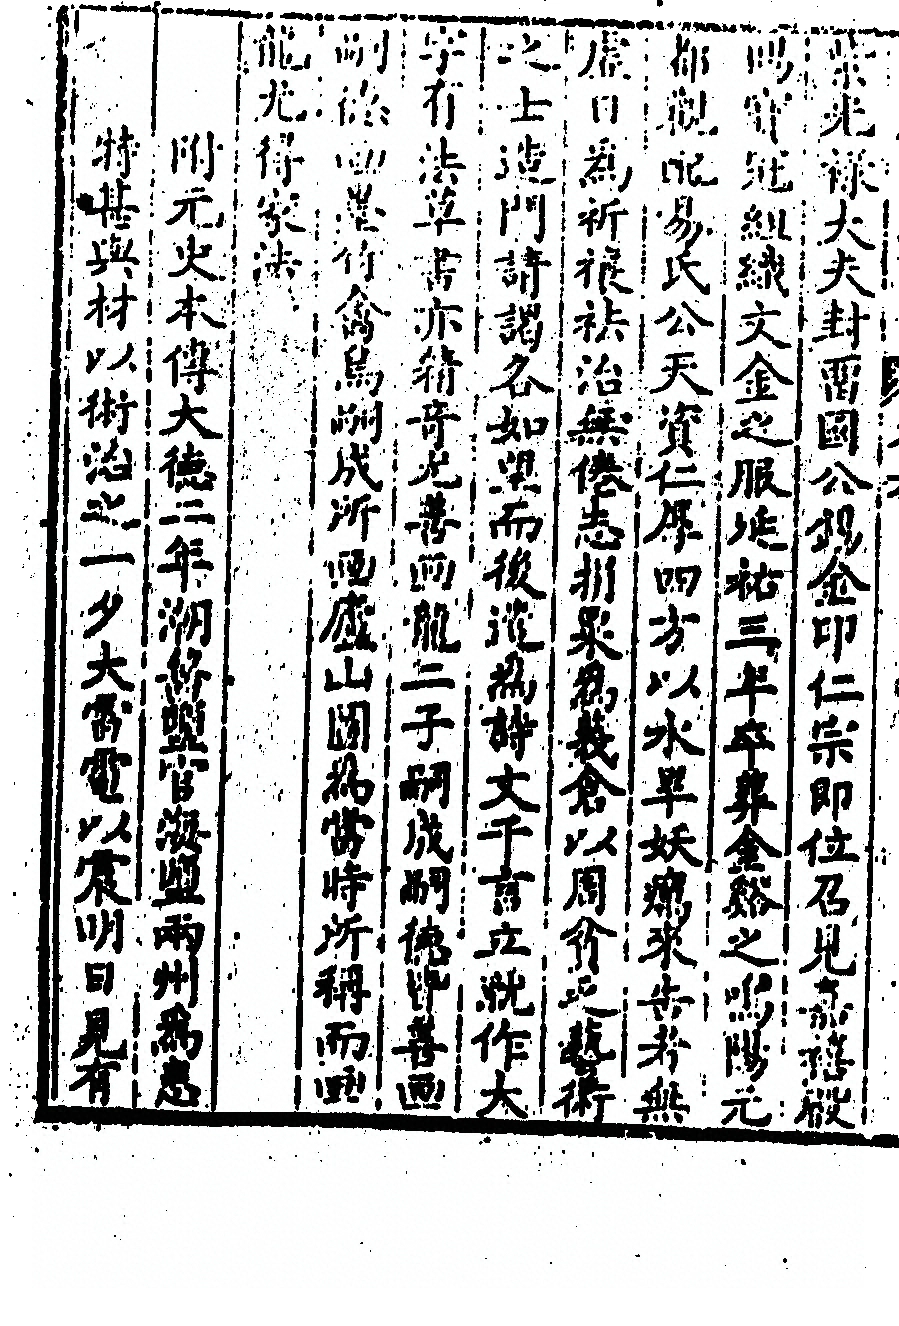 榮光祿大夫封留國公錫金印仁宗即位召見嘉禧殿
賜寶冠組織文金之服延祐三年卒葬金谿之鳴陽元
都觀配易氏公天資仁厚四方以水旱妖癘來告者無
虛日為祈禬祛治無倦志捐衆為義倉以周 乏藝術
之士造門請謁各如望而後遂為詩文千言立就作大
字有法草書亦精奇尤善画龍二子嗣成嗣德即善画
嗣德画墨竹禽鳥嗣成所画廬山圖為當時所稱而画
龍尤得家法
附元史本傳大德二年潮齧鹽官海鹽兩州為患
特甚與材以術治之一夕大雷電以震明日見有